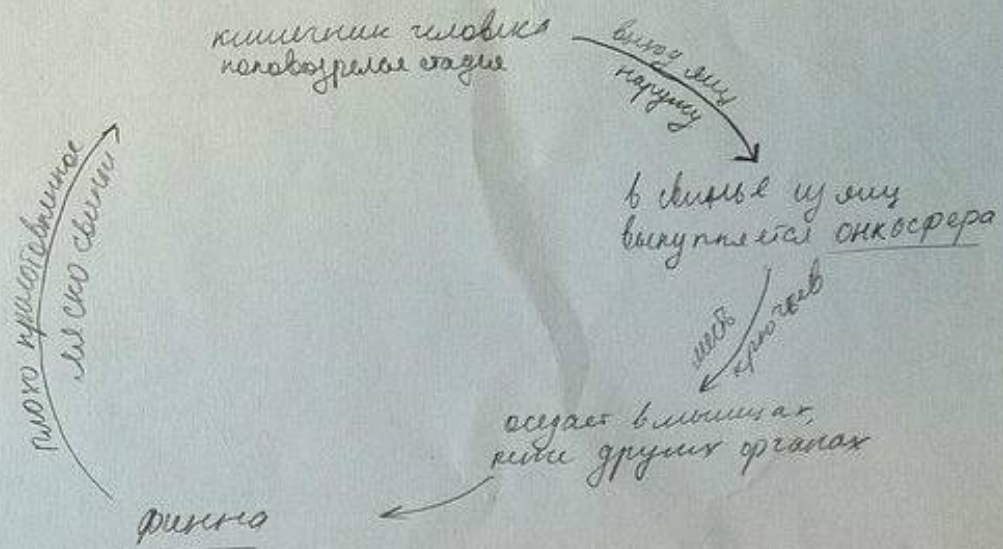 кишечник человека
половозрелая стадия
выход яиц
наружу
в свинье из яиц
вылупляется онкосфера
шесть
крючьев
оседает в мышцах,
реже других органах
финна
плохо приготовленное
мясо свиньи